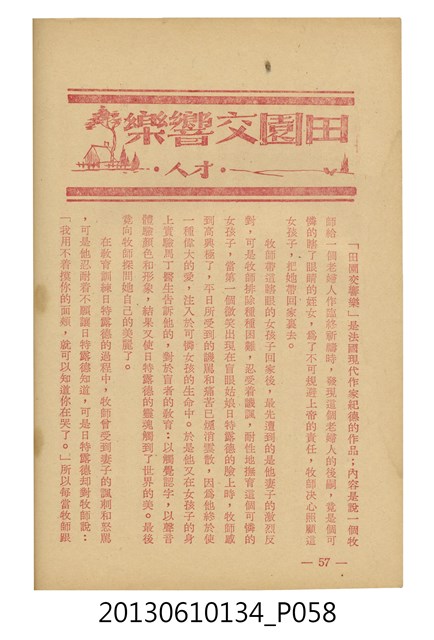 田園交響樂
·才人·
「田園交響樂」是法國現代作家紀德的作品;內容是說一個牧
師給一個老婦人作臨終祈禱時,發現這個老婦人的後嗣,竟是個可
憐的瞎了眼睛的姪女,爲了不可規避上帝的責任,牧師决心照顧這
女孩子,把她帶回家裏去。
牧師帶這瞎眼的女孩子回家後,最先遭到的是他妻子的激烈反
對,可是牧師排除種種困難,忍受着譏諷,耐性地撫育這個可憐的
女孩子,當第一個微笑出現在盲眼姑娘日特露德的臉上時,牧師感
到高興極了,平日所受到的譏罵和痛苦已煙消雲散,因爲他終於使
一種偉大的愛,注入於可憐女孩的生命中。於是他又在女孩子的身
上實驗馬丁醫生告訴他的,對於盲者的敎育:以觸覺認字,以聲音
體驗顏色和形象,結果又使日特露德的靈魂觸到了世界的美。最後
竟向牧師探問她自己的美麗了。
在敎育訓練日特露德的過程中,牧師曾受到妻子的諷刺和怒罵
,可是他忍耐着不願讓日特露德知道,可是日特露德却對牧師說:
「我用不着摸你的面頰,就可以知道你在哭了。」所以每當牧師跟
— 57 —
20130610134_P058